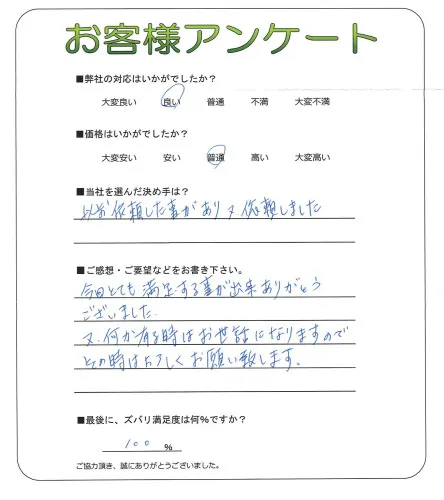 お客様アンケート
■弊社の対応はいかがでしたか?
大変良い 良い 普通 不満 大変不満
■価格はいかがでしたか?
大変安い 安い 普通 高い 大変高い
■当社を選んだ決め手は?
以前依頼した事があり又依頼しました
■ご感想・ご要望などをお書き下さい。
今回とても満足する事が出来ありがとう
ございました.
又、何か有る時はお世話になりますので
その時はよろしくお願い致します.
■最後に、ズバリ満足度は何%ですか?
100 %
ご協力頂き、誠にありがとうございました。